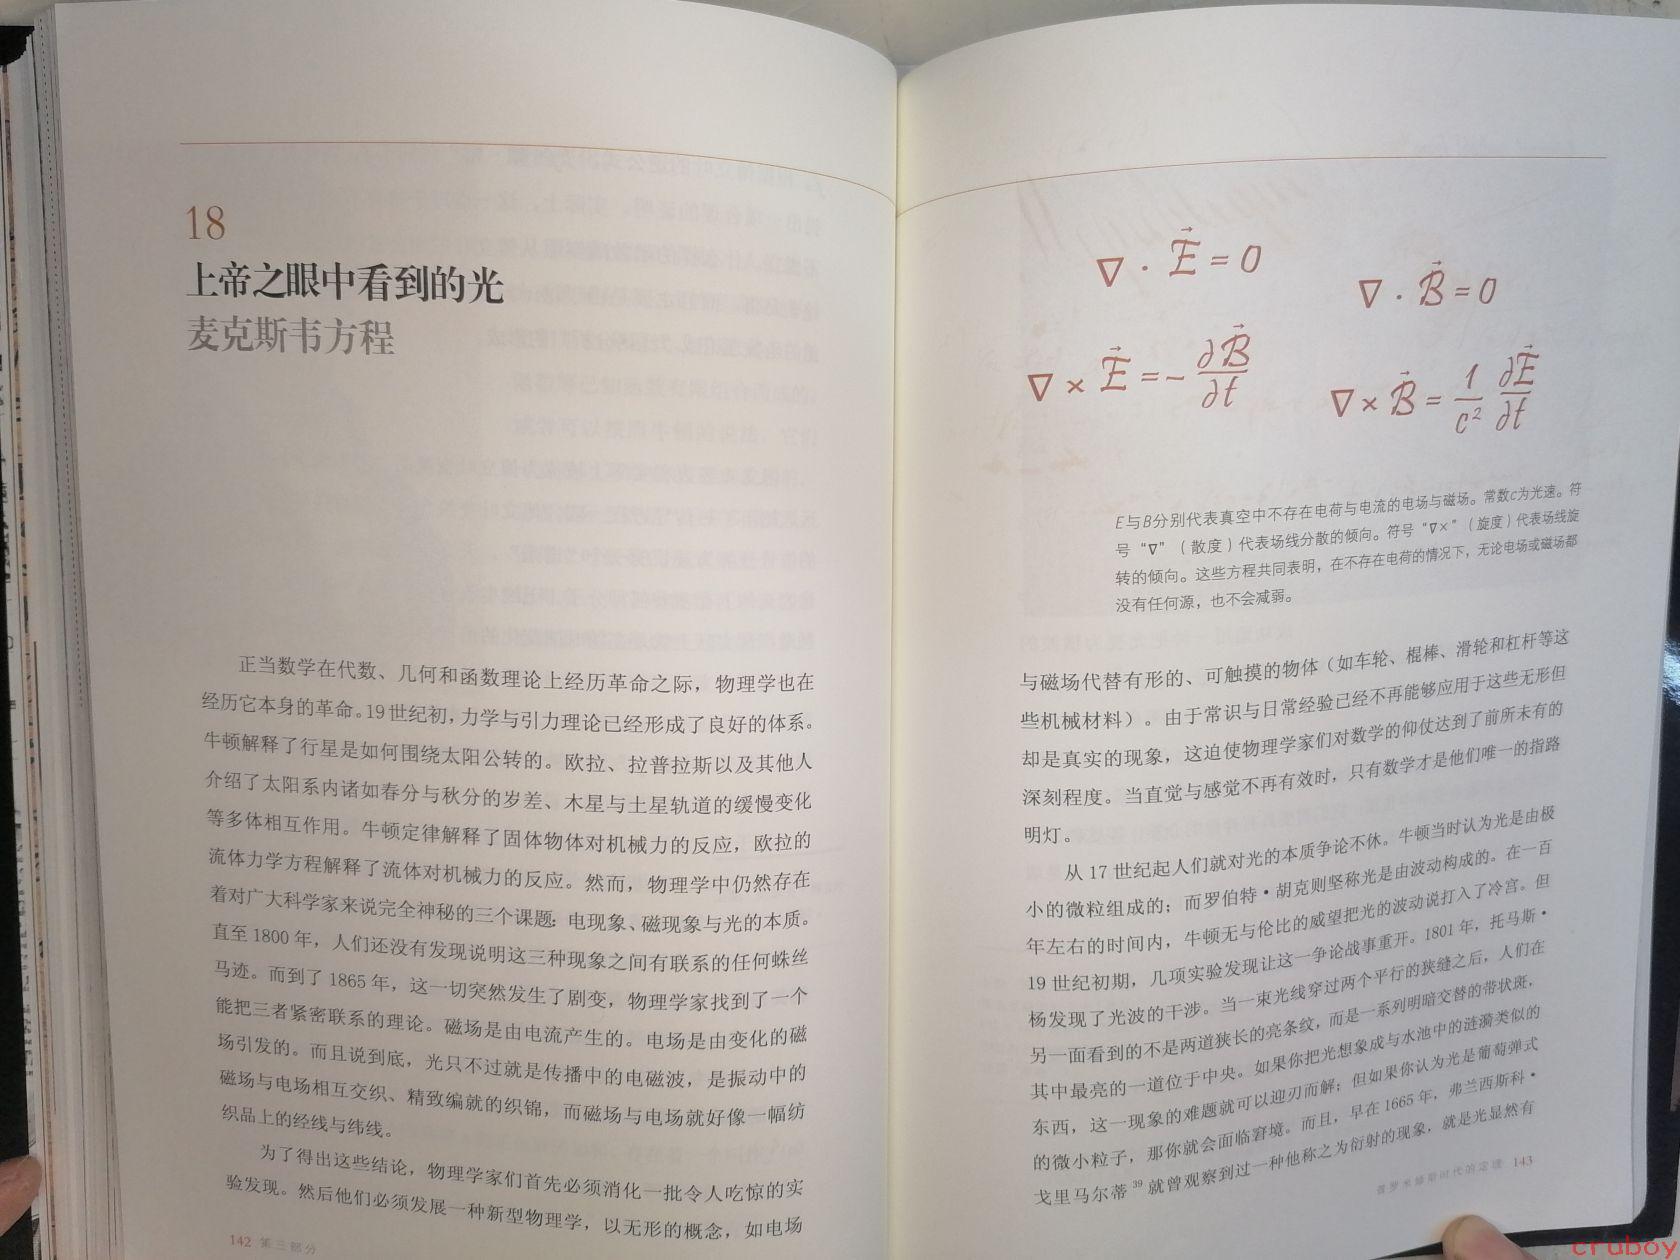 18
上帝之眼中看到的光
麦克斯韦方程
正当数学在代数、几何和函数理论上经历革命之际，物理学也在
经历它本身的革命。19世纪初，力学与引力理论已经形成了良好的体系。
牛顿解释了行星是如何围绕太阳公转的。欧拉、拉普拉斯以及其他人
介绍了太阳系内诸如春分与秋分的岁差、木星与土星轨道的缓慢变化
等多体相互作用。牛顿定律解释了固体物体对机械力的反应，欧拉的
流体力学方程解释了流体对机械力的反应。然而，物理学中仍然存在
着对广大科学家来说完全神秘的三个课题：电现象、磁现象与光的本质。
直至1800年，人们还没有发现说明这三种现象之间有联系的任何蛛丝
马迹。而到了1865年，这一切突然发生了剧变，物理学家找到了一个
能把三者紧密联系的理论。磁场是由电流产生的。电场是由变化的磁
场引发的。而且说到底，光只不过就是传播中的电磁波，是振动中的
磁场与电场相互交织、精致编就的织锦，而磁场与电场就好像一幅纺
织品上的经线与纬线。
为了得出这些结论，物理学家们首先必须消化一批令人吃惊的实
验发现。然后他们必须发展一种新型物理学，以无形的概念，如电场
142 第三部分
∇ · E⃗ = 0
∇ · B⃗ = 0
∇ × E⃗ = − ∂B⃗/∂t
∇ × B⃗ = 1/c² ∂E⃗/∂t
E与B分别代表真空中不存在电荷与电流的电场与磁场。常数c为光速。符
号“∇”（散度）代表场线分散的倾向。符号“∇×”（旋度）代表场线旋
转的倾向。这些方程共同表明，在不存在电荷的情况下，无论电场或磁场都
没有任何源，也不会减弱。
与磁场代替有形的、可触摸的物体（如车轮、棍棒、滑轮和杠杆等这
些机械材料）。由于常识与日常经验已经不再能够应用于这些无形但
却是真实的现象，这迫使物理学家们对数学的仰仗达到了前所未有的
深刻程度。当直觉与感觉不再有效时，只有数学才是他们唯一的指路
明灯。
从17世纪起人们就对光的本质争论不休。牛顿当时认为光是由极
小的微粒组成的；而罗伯特·胡克则坚称光是由波动构成的。在一百
年左右的时间内，牛顿无与伦比的威望把光的波动说打入了冷宫。但
19世纪初期，几项实验发现让这一争论战事重开。1801年，托马斯·
杨发现了光波的干涉。当一束光线穿过两个平行的狭缝之后，人们在
另一面看到的不是两道狭长的亮条纹，而是一系列明暗交替的带状斑，
其中最亮的一道位于中央。如果你把光想象成与水池中的涟漪类似的
东西，这一现象的难题就可以迎刃而解；但如果你认为光是葡萄弹式
的微小粒子，那你就会面临窘境。而且，早在1665年，弗兰西斯科·
戈里马尔蒂39就曾观察到过一种他称之为衍射的现象，就是光显然有
普罗米修斯时代的定理 143
cruboy